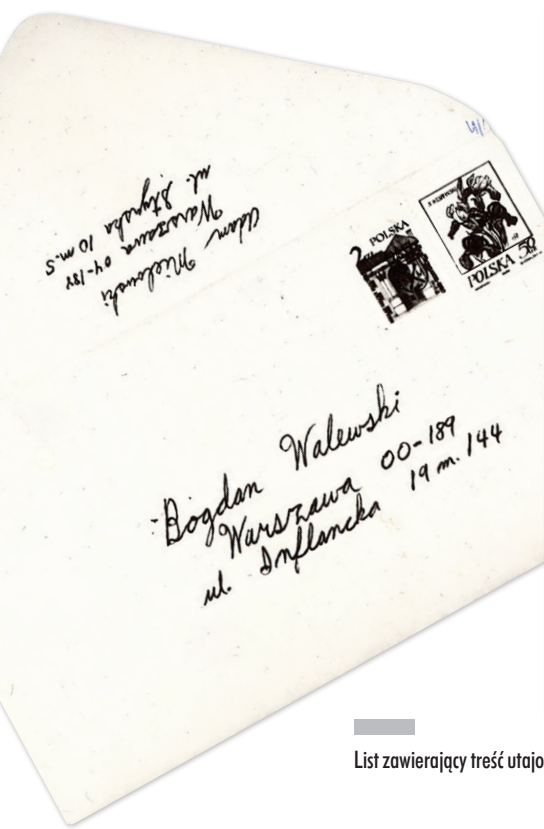 Adam Mielewski
Warszawa 04-188
ul. 10 m. 5
POLSKA
POLSKA
Bogdan Walewski
Warszawa 00-189
ul. Inflancka 19 m. 144
List zawierający treść utajo